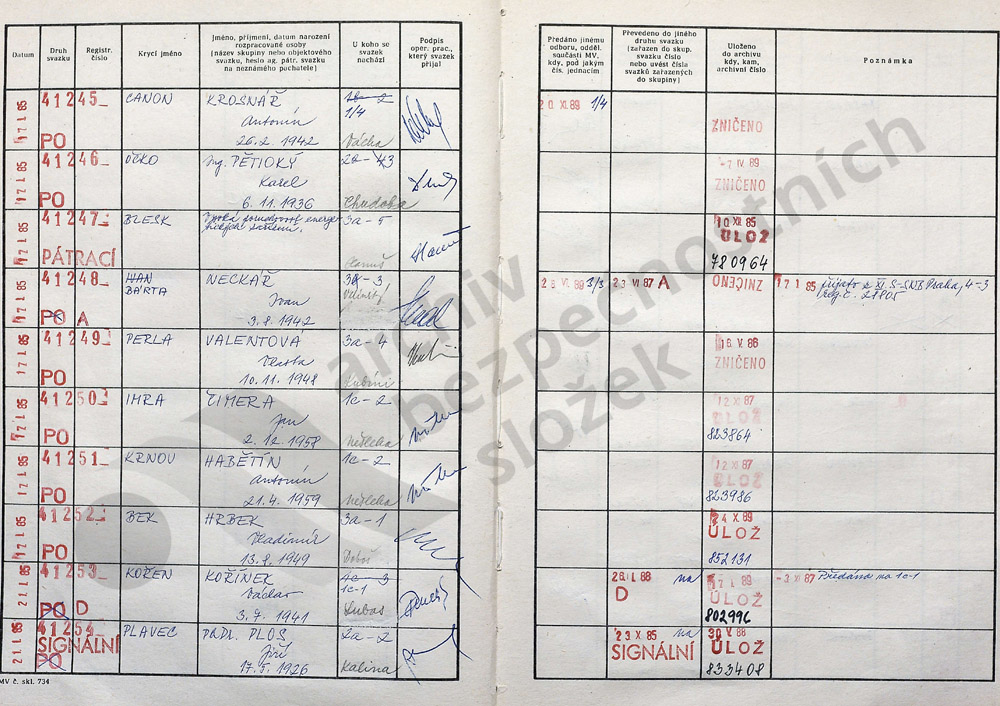 Datum
Druh svazku
Registr. číslo
Krycí jméno
Jméno, příjmení, datum narození
rozpracované osoby
(název skupiny nebo objektového
svazku, heslo ag. pátr. svazku
na neznámého pachatele)
U koho se
svazek
nachází
Podpis
oper. prac.,
který svazek
přijal
Předáno jinému
odboru, odděl.
součásti MV,
kdy, pod jakým
čís. jednacím
Převedeno do jiného
druhu svazku
(zařazen do skup.
svazku číslo
nebo uvést čísla
svazků zařazených
do skupiny)
Uloženo
do archivu
kdy, kam,
archivní číslo
Poznámka
17 1 85 41245 CANON KROSNÁŘ 1/4 20. XI. 89 1/4
Antonín ZNIČENO
PO 26.2. 1942 Vácha
17 1 85 41246 OČKO Ing. PĚTIOKÝ -7 IV. 89
Karel ZNIČENO
PO 6.11.1936 Chudoba
17 1 85 41247 BLESK 3a-5 10 XII. 85
ÚLOŽ
PÁTRACÍ 780964
17 1 85 41248 HAN NECKÁŘ 3 28 VI. 89 3/3 23 VI 87 A ZNIČENO 17 1 85 přijato z XI. S-SNB Praha, 4-3
BÁRTA Ivan reg. č. 21805
PO A 3.8.1942
17 1 85 41249 PERLA VALENTOVÁ 3a-4 16 V. 86
Vlasta ZNIČENO
PO 10.11.1948
17 1 85 41250 IMRA ČIMERA 1c-2 12 XI 87
Jan ÚLOŽ
PO 2.12.1958 Nedleha 823864
17 1 85 41251 KRNOV HABĚTÍN 1c-2 12 XI 87
Antonín ÚLOŽ
PO 21.4.1959 Nedleha 823986
17 1 85 41252 BEK HRBEK 3a-1 4 X. 89
Vladimír ÚLOŽ
PO 13.8.1949 852131
21 1 85 41253 KOŘEN KOŘÍNEK 1c-3 26 1. 88 na 17 1. 89 -3 XI 87 Předána na 1c-1
Václav 1c-1 D ÚLOŽ
PO D 3.7.1941 Lubas 802996
21 1 85 41254 PLAVEC PODL. PLOS 2a-2 23 X 85 na 30 V. 88
SIGNÁLNÍ Jiří SIGNÁLNÍ ÚLOŽ
PO 17.5.1926 Kalina 833408
MV č. skl. 734
archiv
bezpečnostních
složek